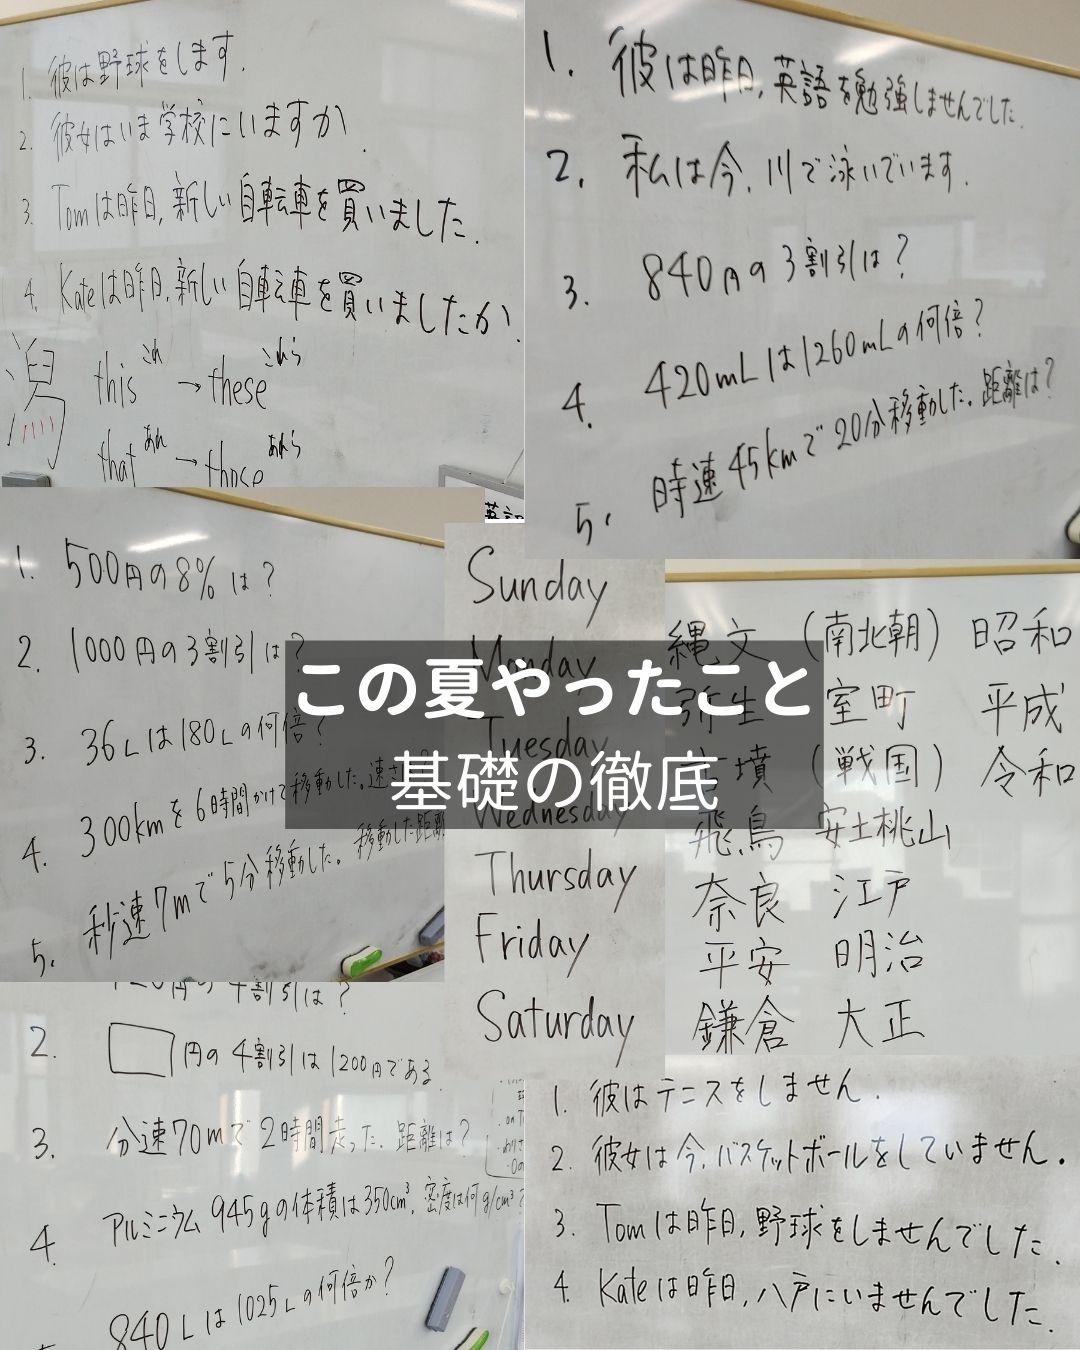 1. 彼は野球をします.
2. 彼女はいま学校にいますか.
3. Tomは昨日, 新しい自転車を買いました.
4. Kateは昨日, 新しい自転車を買いましたか.
this これ → these これら
that あれ → those あれら
1. 彼は昨日, 英語を勉強しませんでした.
2. 私は今, 川で泳いでいます.
3. 840円の3割引は?
4. 420mLは1260mLの何倍?
5. 時速45kmで20分移動した。距離は?
英語
1. 500円の8%は?
2. 1000円の3割引は?
3. 36Lは180Lの何倍?
4. 300kmを6時間かけて移動した。速さ
5. 秒速7mで5分移動した。移動した距離
Sunday
Monday
Tuesday
Wednesday
Thursday
Friday
Saturday
縄文 (南北朝) 昭和
弥生 室町 平成
古墳 (戦国) 令和
飛鳥 安土桃山
奈良 江戸
平安 明治
鎌倉 大正
この夏やったこと
基礎の徹底
円の4割引は?
2. 円の4割引は1200円である.
3. 分速70mで2時間走った. 距離は?
4. アルミニウム945gの体積は350cm³. 密度は何g/cm³?
840Lは1025Lの何倍か?
1. 彼はテニスをしません.
2. 彼女は今, バスケットボールをしていません.
3. Tomは昨日, 野球をしませんでした.
4. Kateは昨日, 八戸にいませんでした.